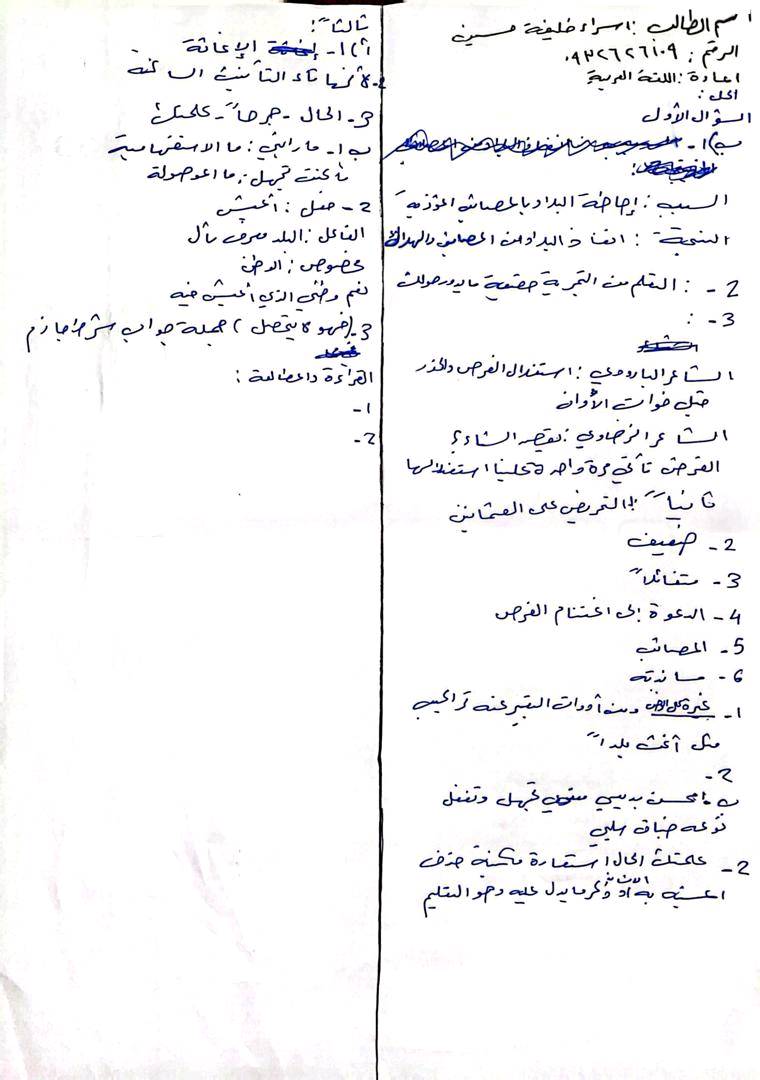 اسم الطالب : اسراء خليفة حسين
الرقم : ٠٩٣٢٦٢٦١٠٩
المادة : اللغة العربية
الحل :
السؤال الأول
ب) 1-
السبب : إحاطة البلاد بالمصائب المؤذية
النتيجة : انقاذ البلاد من المصائب والهلاك
2- : التعلم من التجربة حقيقة ما يدور حولك
3- :
الشاعر البارودي : استغلال الفرص والحذر
قبل فوات الأوان
الشاعر الرصافي : يقصد الشاعر
الفرص تأتي مرة واحدة علينا استغلالها
ثانياً : 1- التحريض على العثمانيين
2- ضعيف
3- متفائلاً
4- الدعوة إلى اغتنام الفرص
5- المصائب
6- مساندته
1- ومن أدوات التعبير عنه تراكيب
مثل أغث بلداً
2-
ب 1- محسن بديعي معنوي تجهل وتغفل
نوعه طباق سلبي
2- علمتك الحال استعارة مكنية حذف
المشبه به الانسان وذكر ما يدل عليه وهو التعليم
ثالثاً :
أ) 1- الإغاثة
2- لأنها تاء التأنيث الساكنة
3- الحال - جرحاً - علمتك
ب 1- ما رابني : ما الاستفهامية
ما كنت تجهل : ما الموصولة
2- فعل : أعيش
الفاعل : البلد معرف بأل
مخصوص : الوطن
نعم وطني الذي أعيش فيه
3- (فهو لا يتحصل) جملة جواب شرط جازم
القراءة والمطالعة :
1-
2-